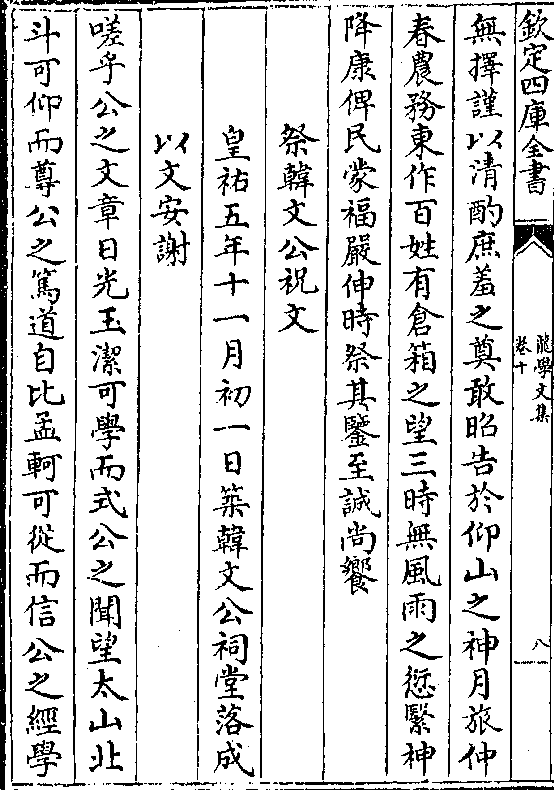 欽定四庫全書
龍學文集
卷十
八
無擇謹以清酌庶羞之奠敢昭告於仰山之神月旅仲
春農務東作百姓有倉箱之望三時無風雨之愆繄神
降康俾民蒙福嚴伸時祭其鑒至誠尚饗
祭韓文公祝文
皇祐五年十一月初一日築韓文公祠堂落成
以文安謝
嗟乎公之文章日光玉潔可學而式公之聞望太山北
斗可仰而尊公之篤道自比孟軻可從而信公之經學